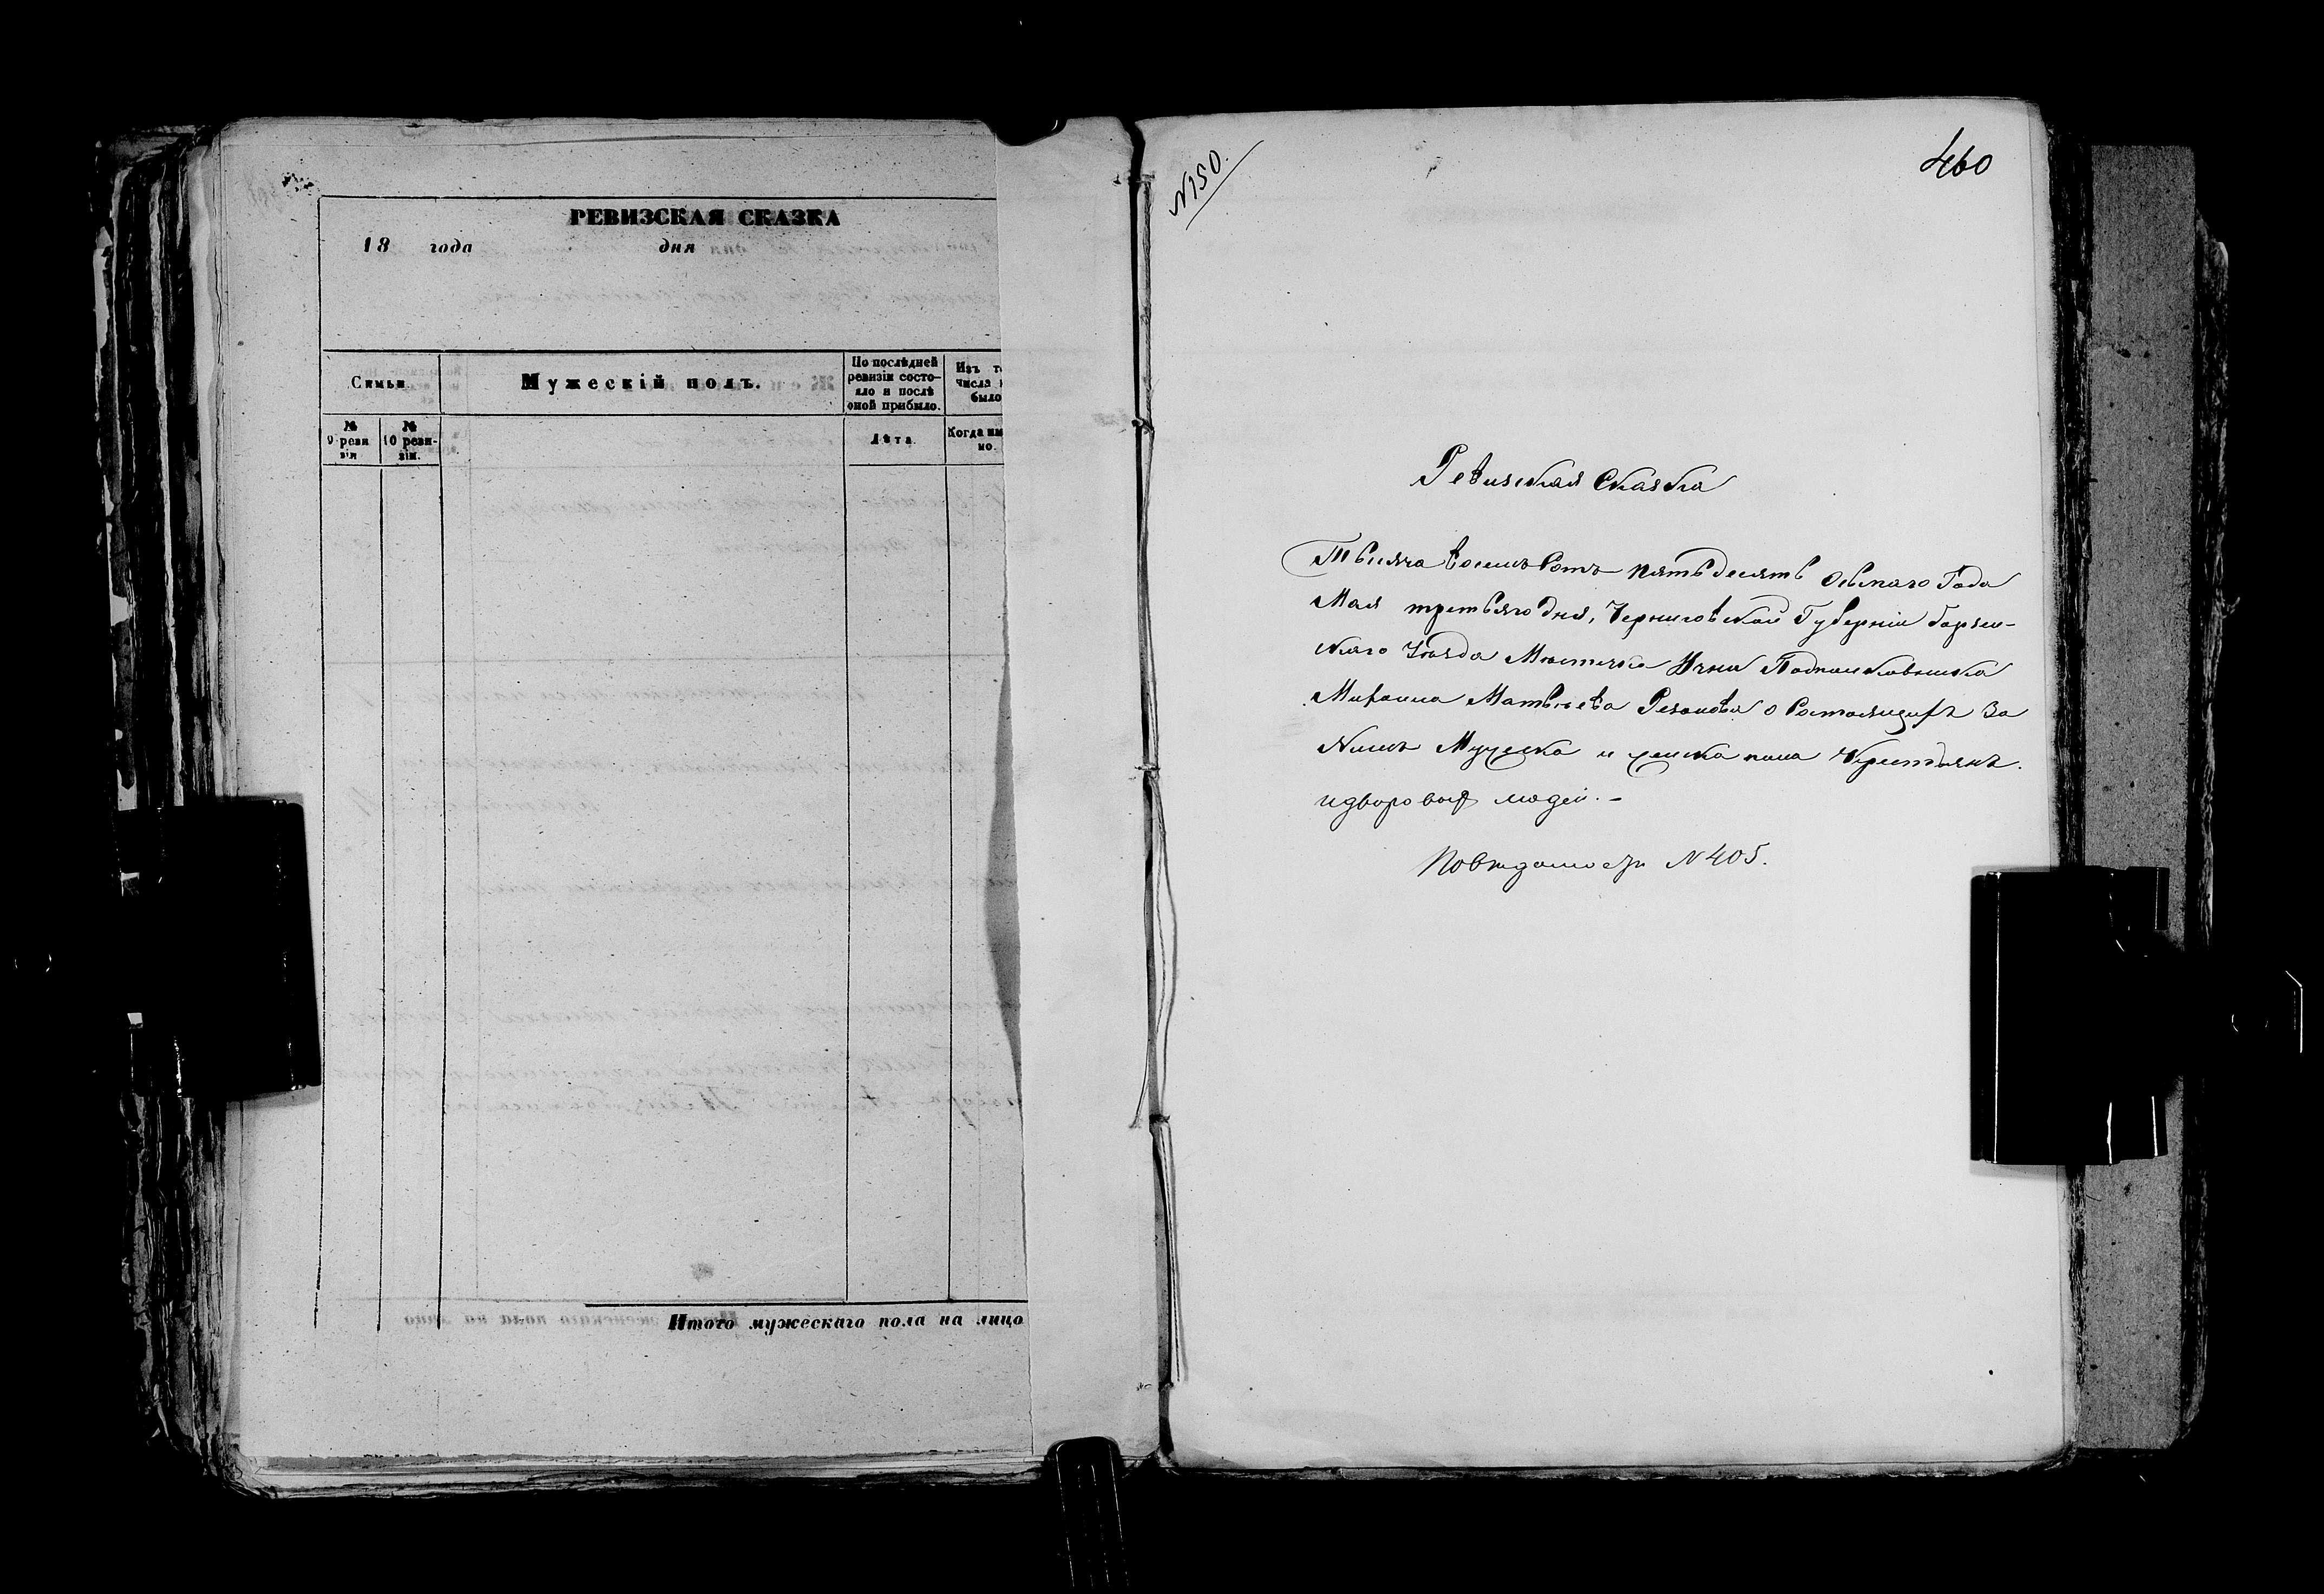 РЕВИЗСКАЯ СКАЗКА
18 года дня
Симьи.
Мужескій полъ.
По послѣдней ревизіи состо-
яло и послѣ
оной прибыло.
Изъ т
числа
было
№
9 реви
зіи
№
10 реви-
зіи.
Лѣта.
Когда им
но.
Итого мужескаго пола на лицо
N150.
460
Ревизская Сказка
Тысяча восемьсотъ пятьдесятъ осьмаго Года
Мая третьяго дня, Черниговской Губерніи Борзен-
скаго Уѣзда Мѣстечка Ични Подполковника
Матвѣева о состоящихъ за
Нимъ Мужеска и женска пола Крестьянъ.
и дворовыхъ людей. –
По вѣдомости N 405.